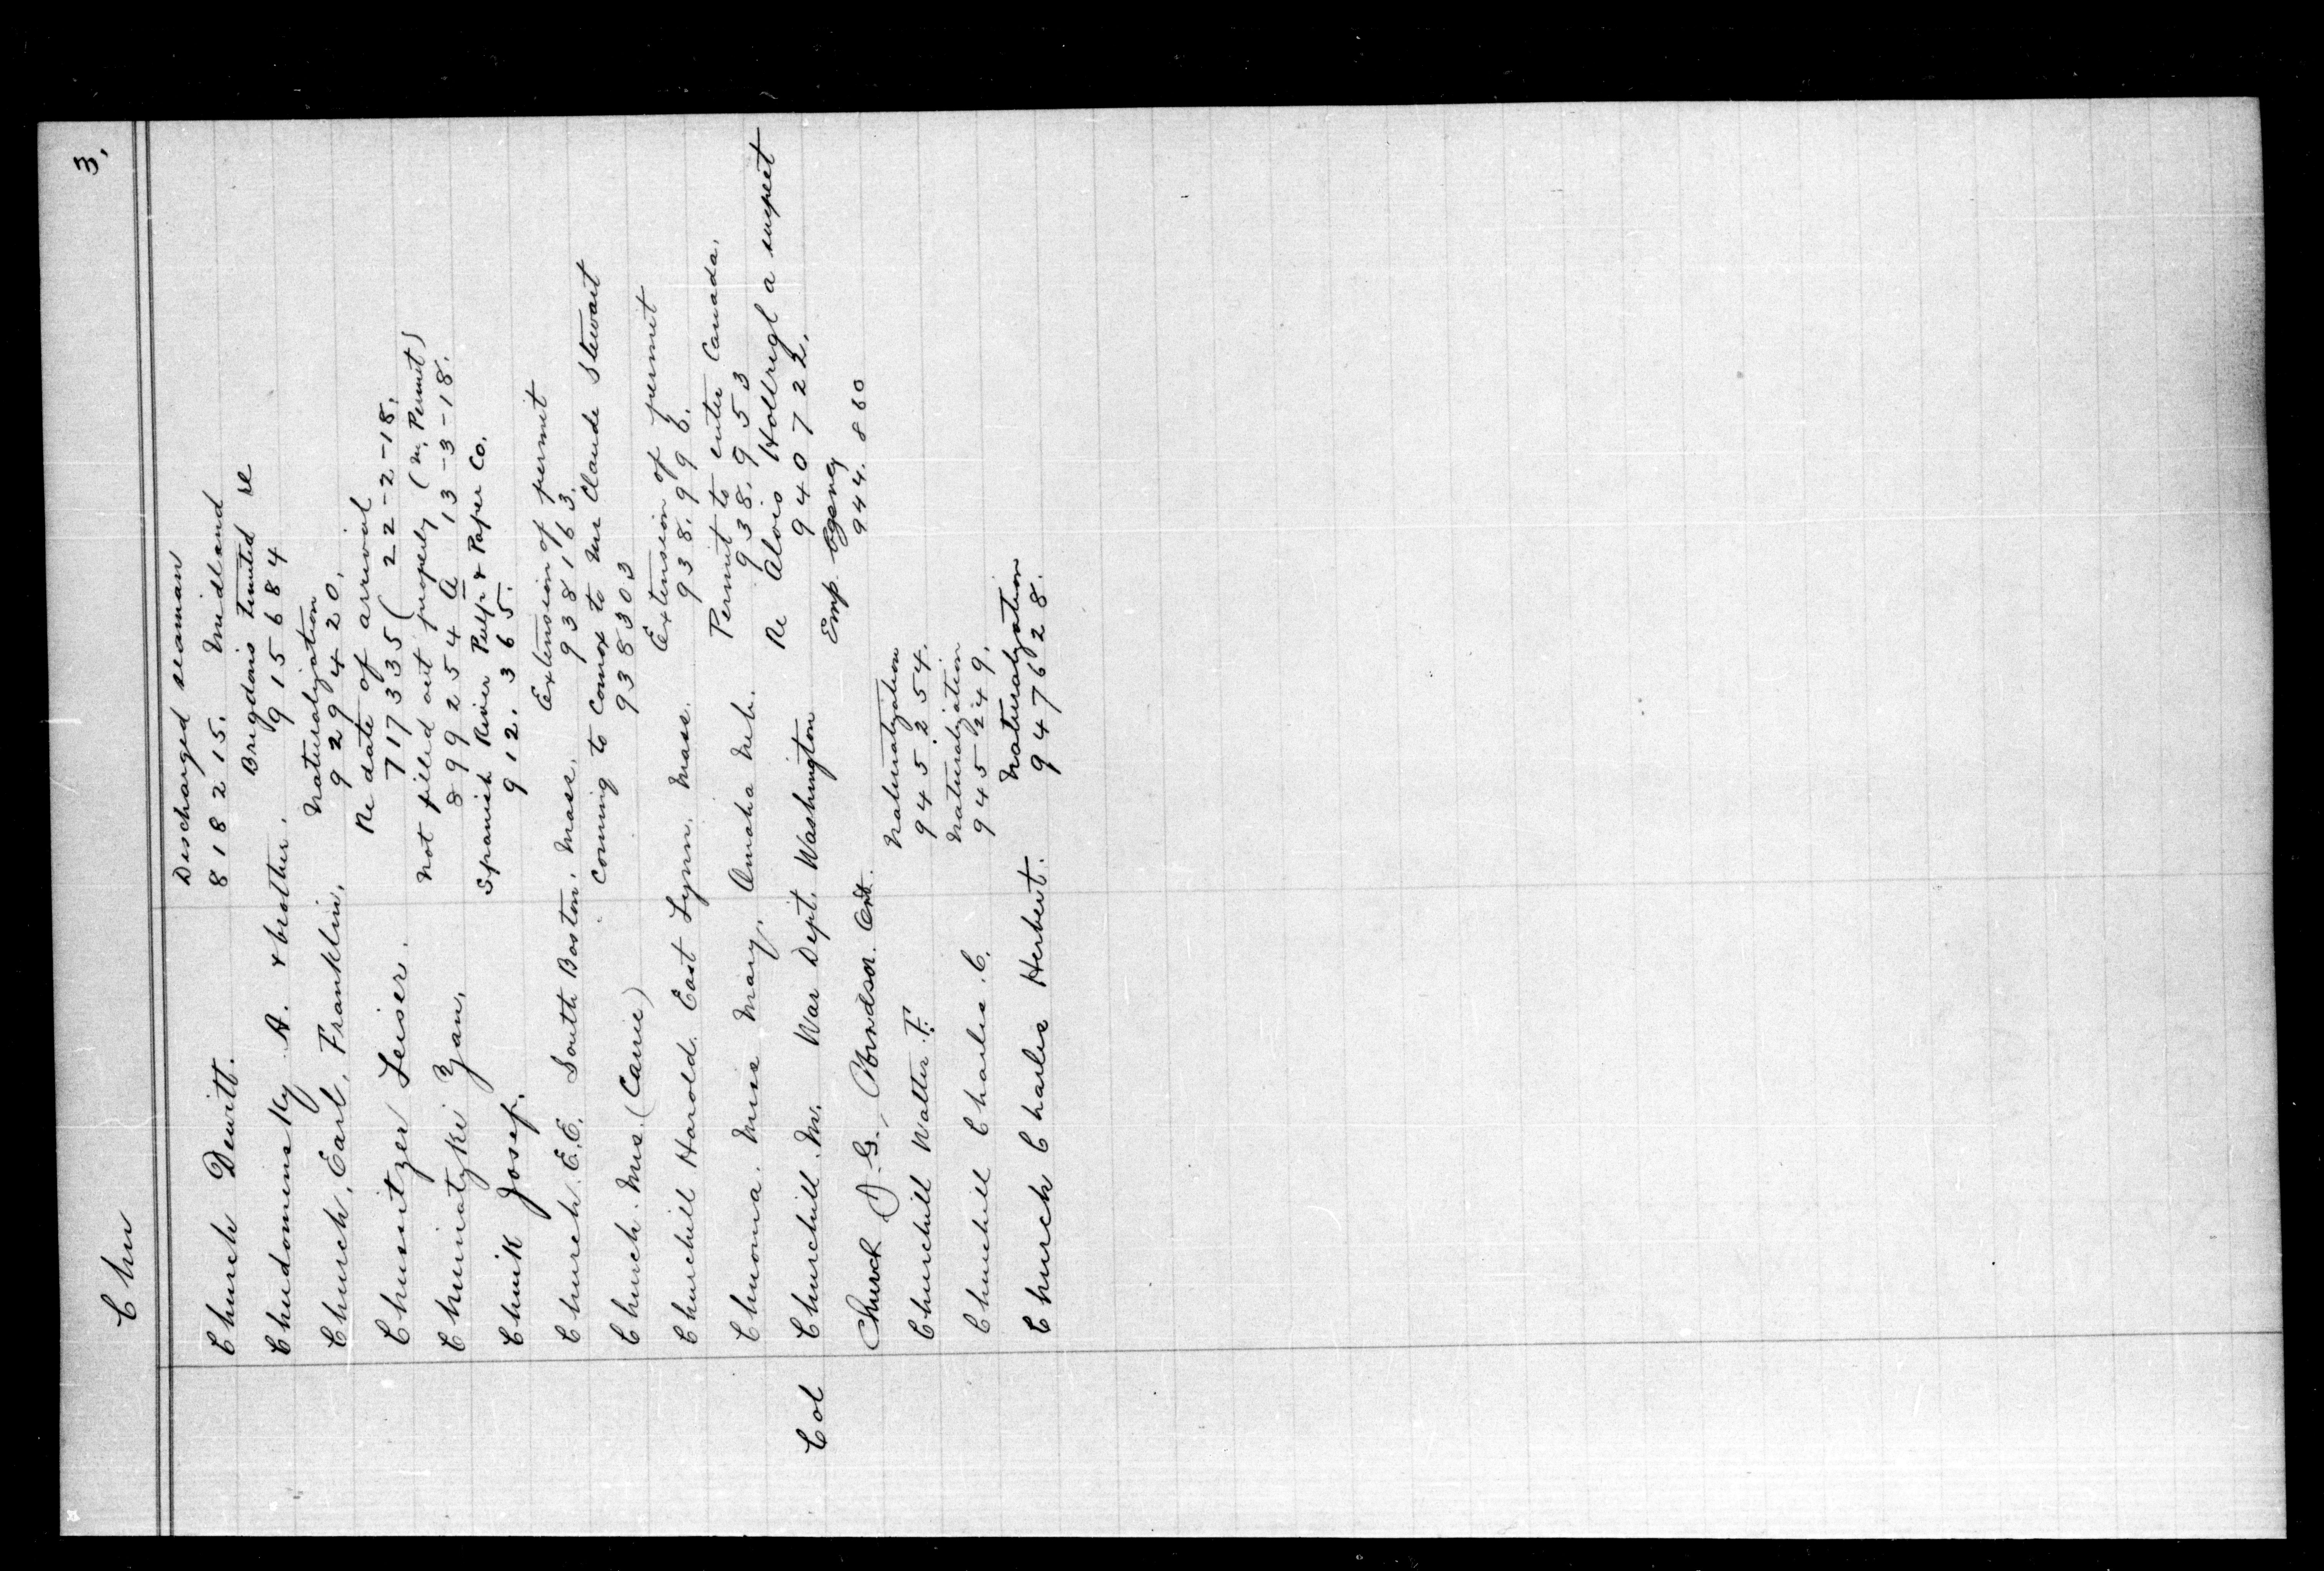 Chu 3.
Discharged seaman
Church Dewitt. 818215. Midland
Brigdens Limited re
Chudominsky A. & brother. 915684
Naturalization
Church, Earl, Franklin. 929420.
Re date of arrival
Chusitzer Leiser. 717335 ( 22-2-18.
Not filled out properly (M. Permit)
Chuinatzki Zan. 899254 A 13-3-18.
Spanish River Pulp & Paper Co.
Chuik Josep. 912.365.
Extension of permit
Church. E.E. South Boston. Mass. 938163.
Coming to Comox to Mr Claude Stewart
Church. Mrs. (Carrie) 938303
Extension of permit
Churchill Harold. East Lynn. Mass. 938.996.
Permit to enter Canada.
Chuoma. Miss Mary. Omaha Neb. 938.953
Re Alois Hollregl a suspect
Col Churchill. M. War Dept. Washington 940722.
Emp. Agency
Church D. G., Windsor. Ont. 944.860
Naturalization
Churchill Walter F. 945.254.
Naturalization
Churchill Charles. C. 945249.
Naturalization
Church Charles Herbert. 947628.